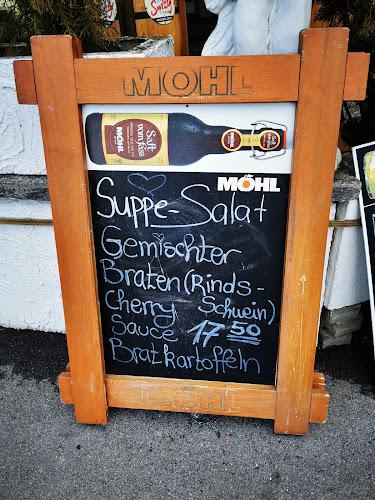 MÖHL
Saft
vom Fass
MÖHL
MÖHL
Suppe-Salat
Gemischter
Braten (Rinds-
Cherry Schwein)
Sauce 17 50
Bratkartoffeln
MÖHL